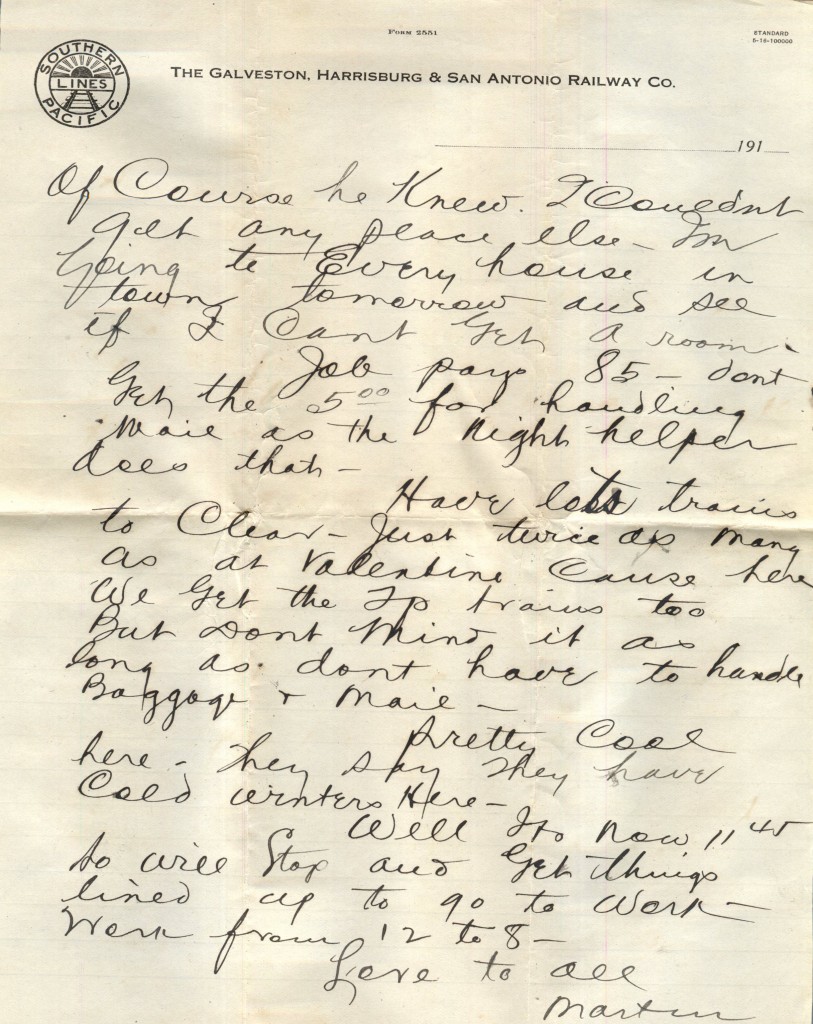 FORM 2551
STANDARD
5-16-100000
SOUTHERN
LINES
PACIFIC
THE GALVESTON, HARRISBURG & SAN ANTONIO RAILWAY CO.
191
Of Course he Knew. I Couldnt
get any place else - Im
Going to Every house in
town tomorrow and see
if I Cant Get a room.
Job pays 85 - dont
Get the 5 00 for handling
Mail as the Night helper
does that -
Have lots trains
to Clear - Just twice as many
as at Valentine Cause here
We Get the Tp trains too
But Dont Mind it as
long as dont have to handle
Baggage & Mail -
Pretty Cool
here - They say They have
Cold winters Here -
Well Its now 11 45
so will Stop and Get Things
lined up to go to Work -
Work from 12 to 8 -
Love to all
Martin